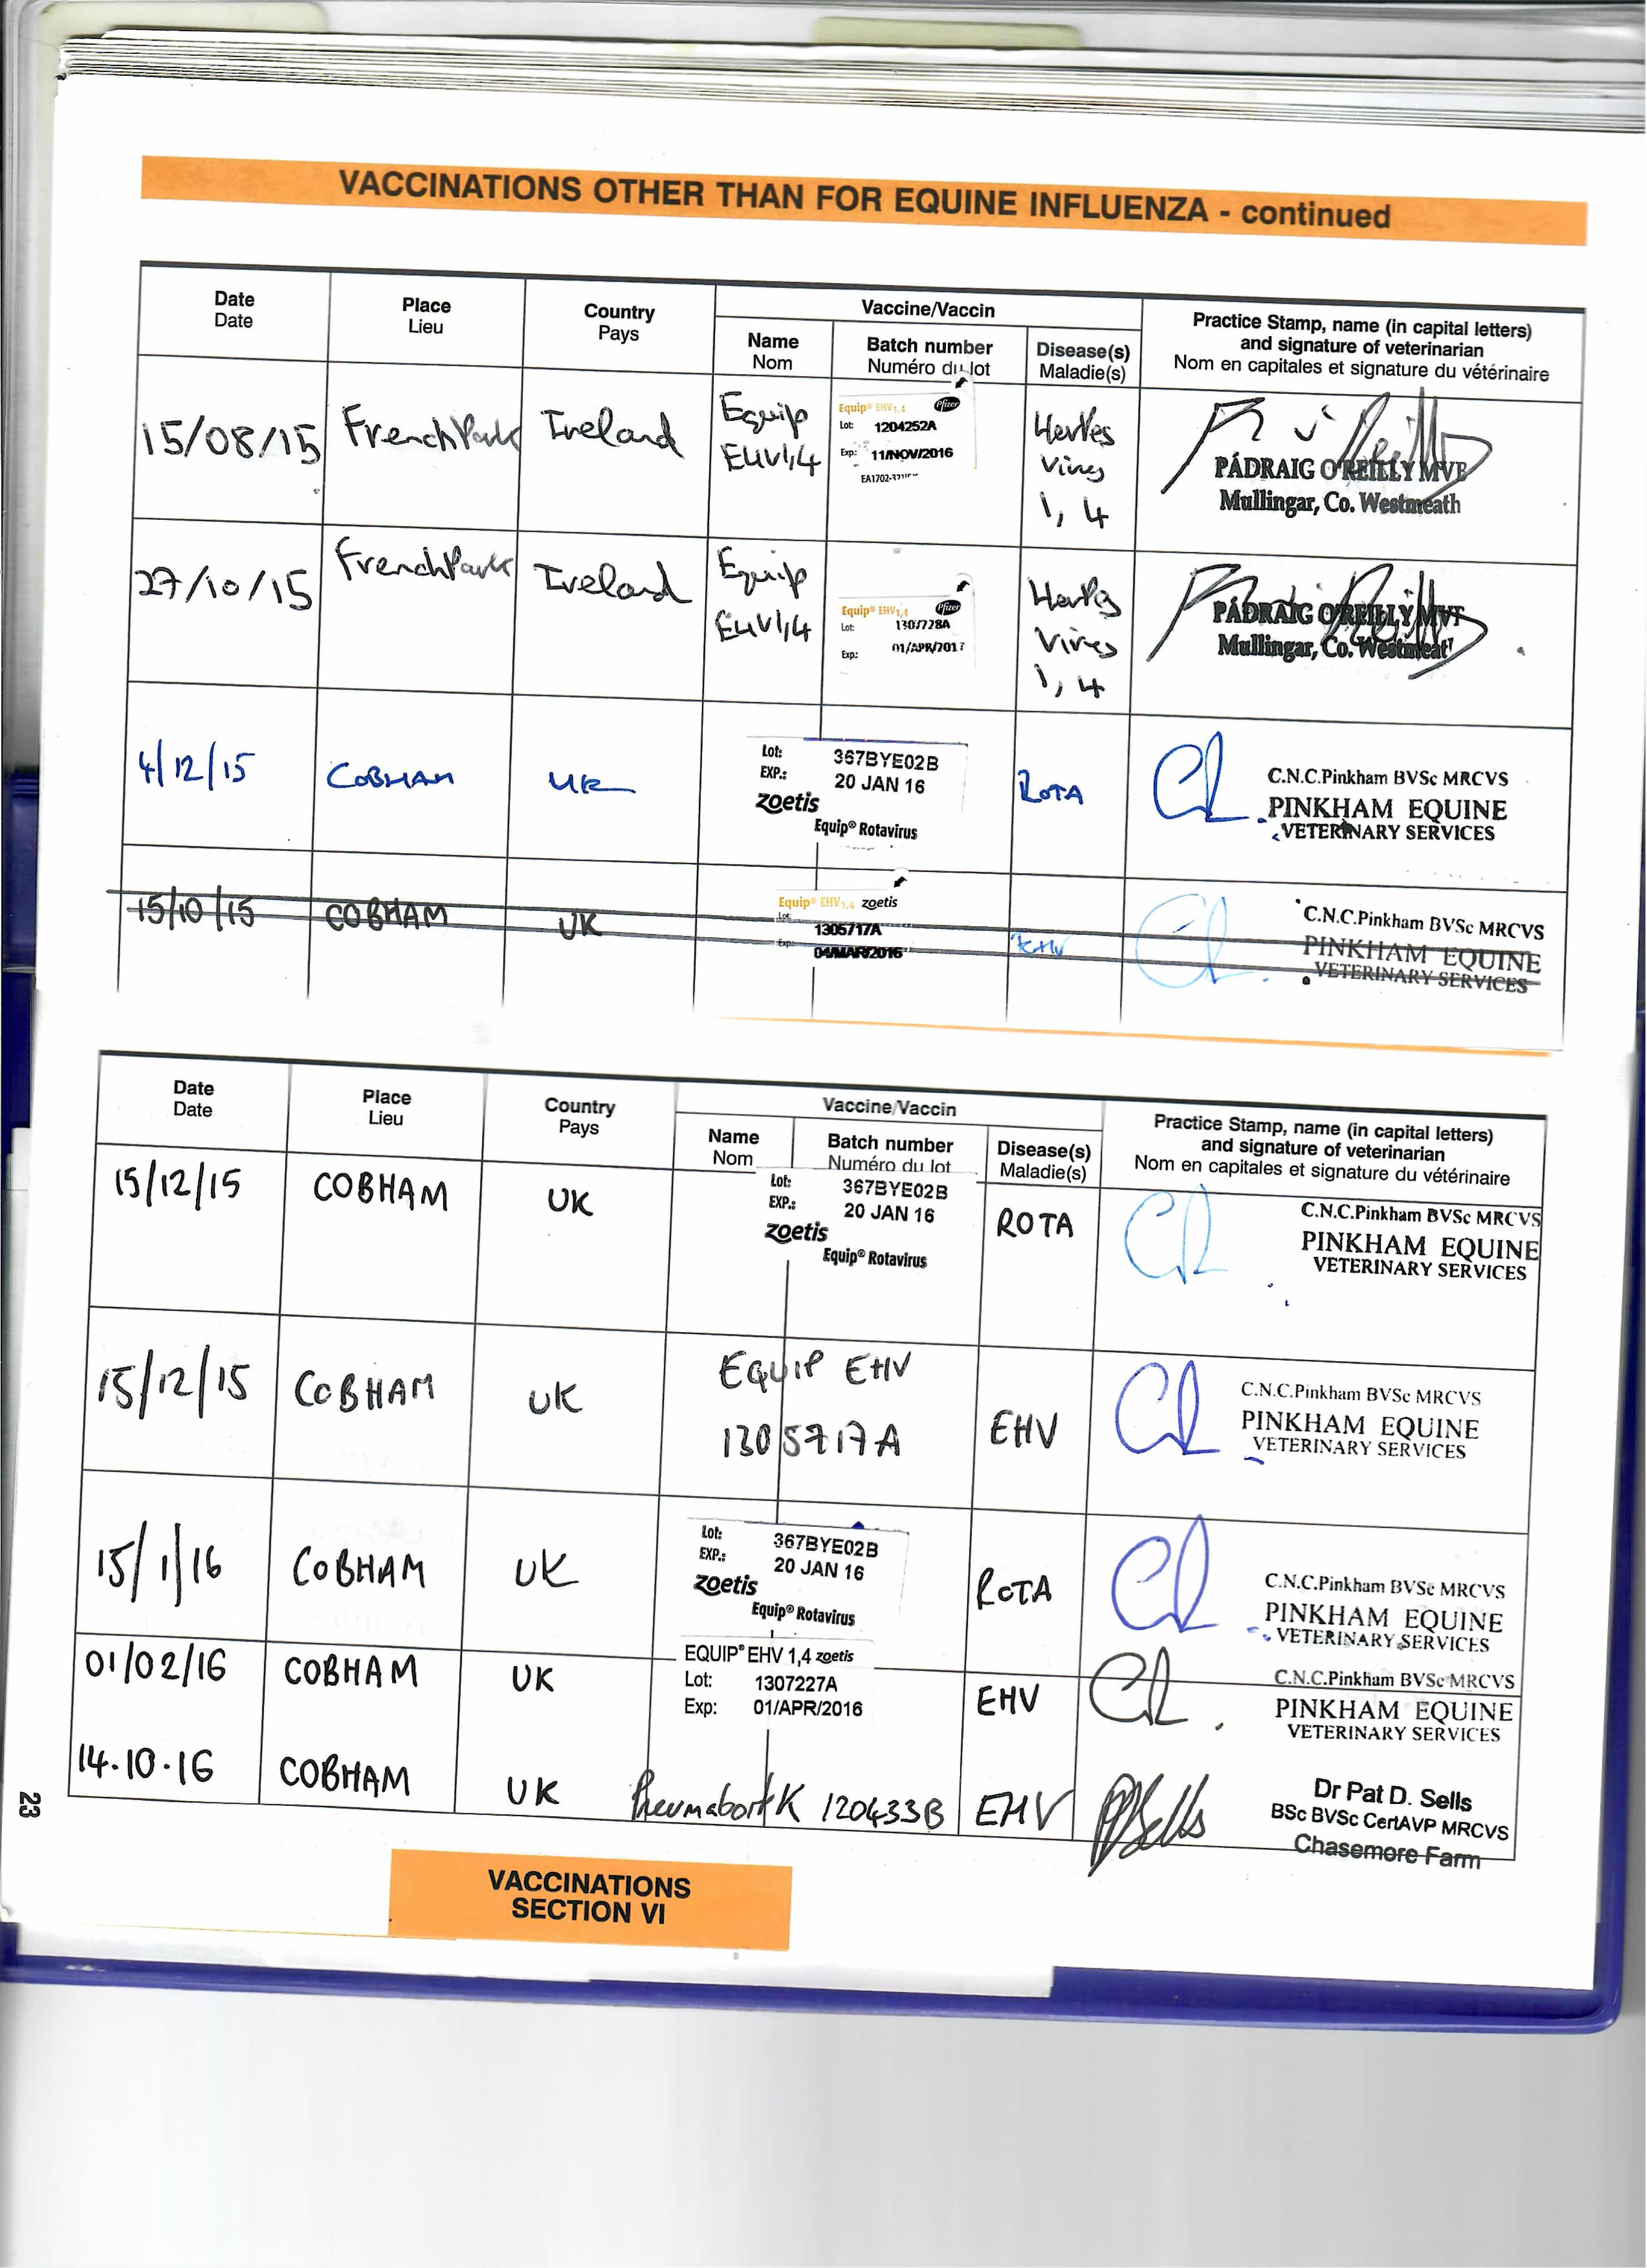 VACCINATIONS OTHER THAN FOR EQUINE INFLUENZA - continued
Date
Date
Place
Lieu
Country
Pays
Vaccine/Vaccin
Name
Nom
Batch number
Numéro du lot
Disease(s)
Maladie(s)
Practice Stamp, name (in capital letters)
and signature of veterinarian
Nom en capitales et signature du vétérinaire
15/08/15
FrenchPark
Ireland
Equip
EHV1,4
Equip® EHV1,4 Pfizer
Lot: 1204252A
Exp: 11/NOV/2016
Herpes
Virus
1, 4
PÁDRAIG O'REILLY MVB
Mullingar, Co. Westmeath
27/10/15
FrenchPark
Ireland
Equip
EHV1,4
Equip® EHV1,4 Pfizer
Lot: 1307728A
Exp: 01/APR/2017
Herpes
Virus
1, 4
PÁDRAIG O'REILLY
Mullingar, Co. Westmeat
4/12/15
COBHAM
UK
Lot: 367BYE02B
EXP.: 20 JAN 16
zoetis
Equip® Rotavirus
ROTA
C.N.C.Pinkham BVSc MRCVS
PINKHAM EQUINE
VETERINARY SERVICES
15/10/15
COBHAM
UK
Equip® EHV1,4 zoetis
Lot: 1305717A
Exp: 04/MAR/2016
EHV
C.N.C.Pinkham BVSc MRCVS
PINKHAM EQUINE
VETERINARY SERVICES
Date
Date
Place
Lieu
Country
Pays
Vaccine/Vaccin
Name
Nom
Batch number
Numéro du lot
Disease(s)
Maladie(s)
Practice Stamp, name (in capital letters)
and signature of veterinarian
Nom en capitales et signature du vétérinaire
15/12/15
COBHAM
UK
Lot: 367BYE02B
EXP.: 20 JAN 16
zoetis
Equip® Rotavirus
ROTA
C.N.C.Pinkham BVSc MRCVS
PINKHAM EQUINE
VETERINARY SERVICES
15/12/15
COBHAM
UK
EQUIP EHV
1305717A
EHV
C.N.C.Pinkham BVSc MRCVS
PINKHAM EQUINE
VETERINARY SERVICES
15/1/16
COBHAM
UK
Lot: 367BYE02B
EXP.: 20 JAN 16
zoetis
Equip® Rotavirus
ROTA
C.N.C.Pinkham BVSc MRCVS
PINKHAM EQUINE
VETERINARY SERVICES
01/02/16
COBHAM
UK
EQUIP® EHV 1,4 zoetis
Lot: 1307227A
Exp: 01/APR/2016
EHV
C.N.C.Pinkham BVSc MRCVS
PINKHAM EQUINE
VETERINARY SERVICES
14.10.16
COBHAM
UK
Pneumabort K 120433B
EHV
PSells
Dr Pat D. Sells
BSc BVSc CertAVP MRCVS
Chasemore Farm
23
VACCINATIONS
SECTION VI